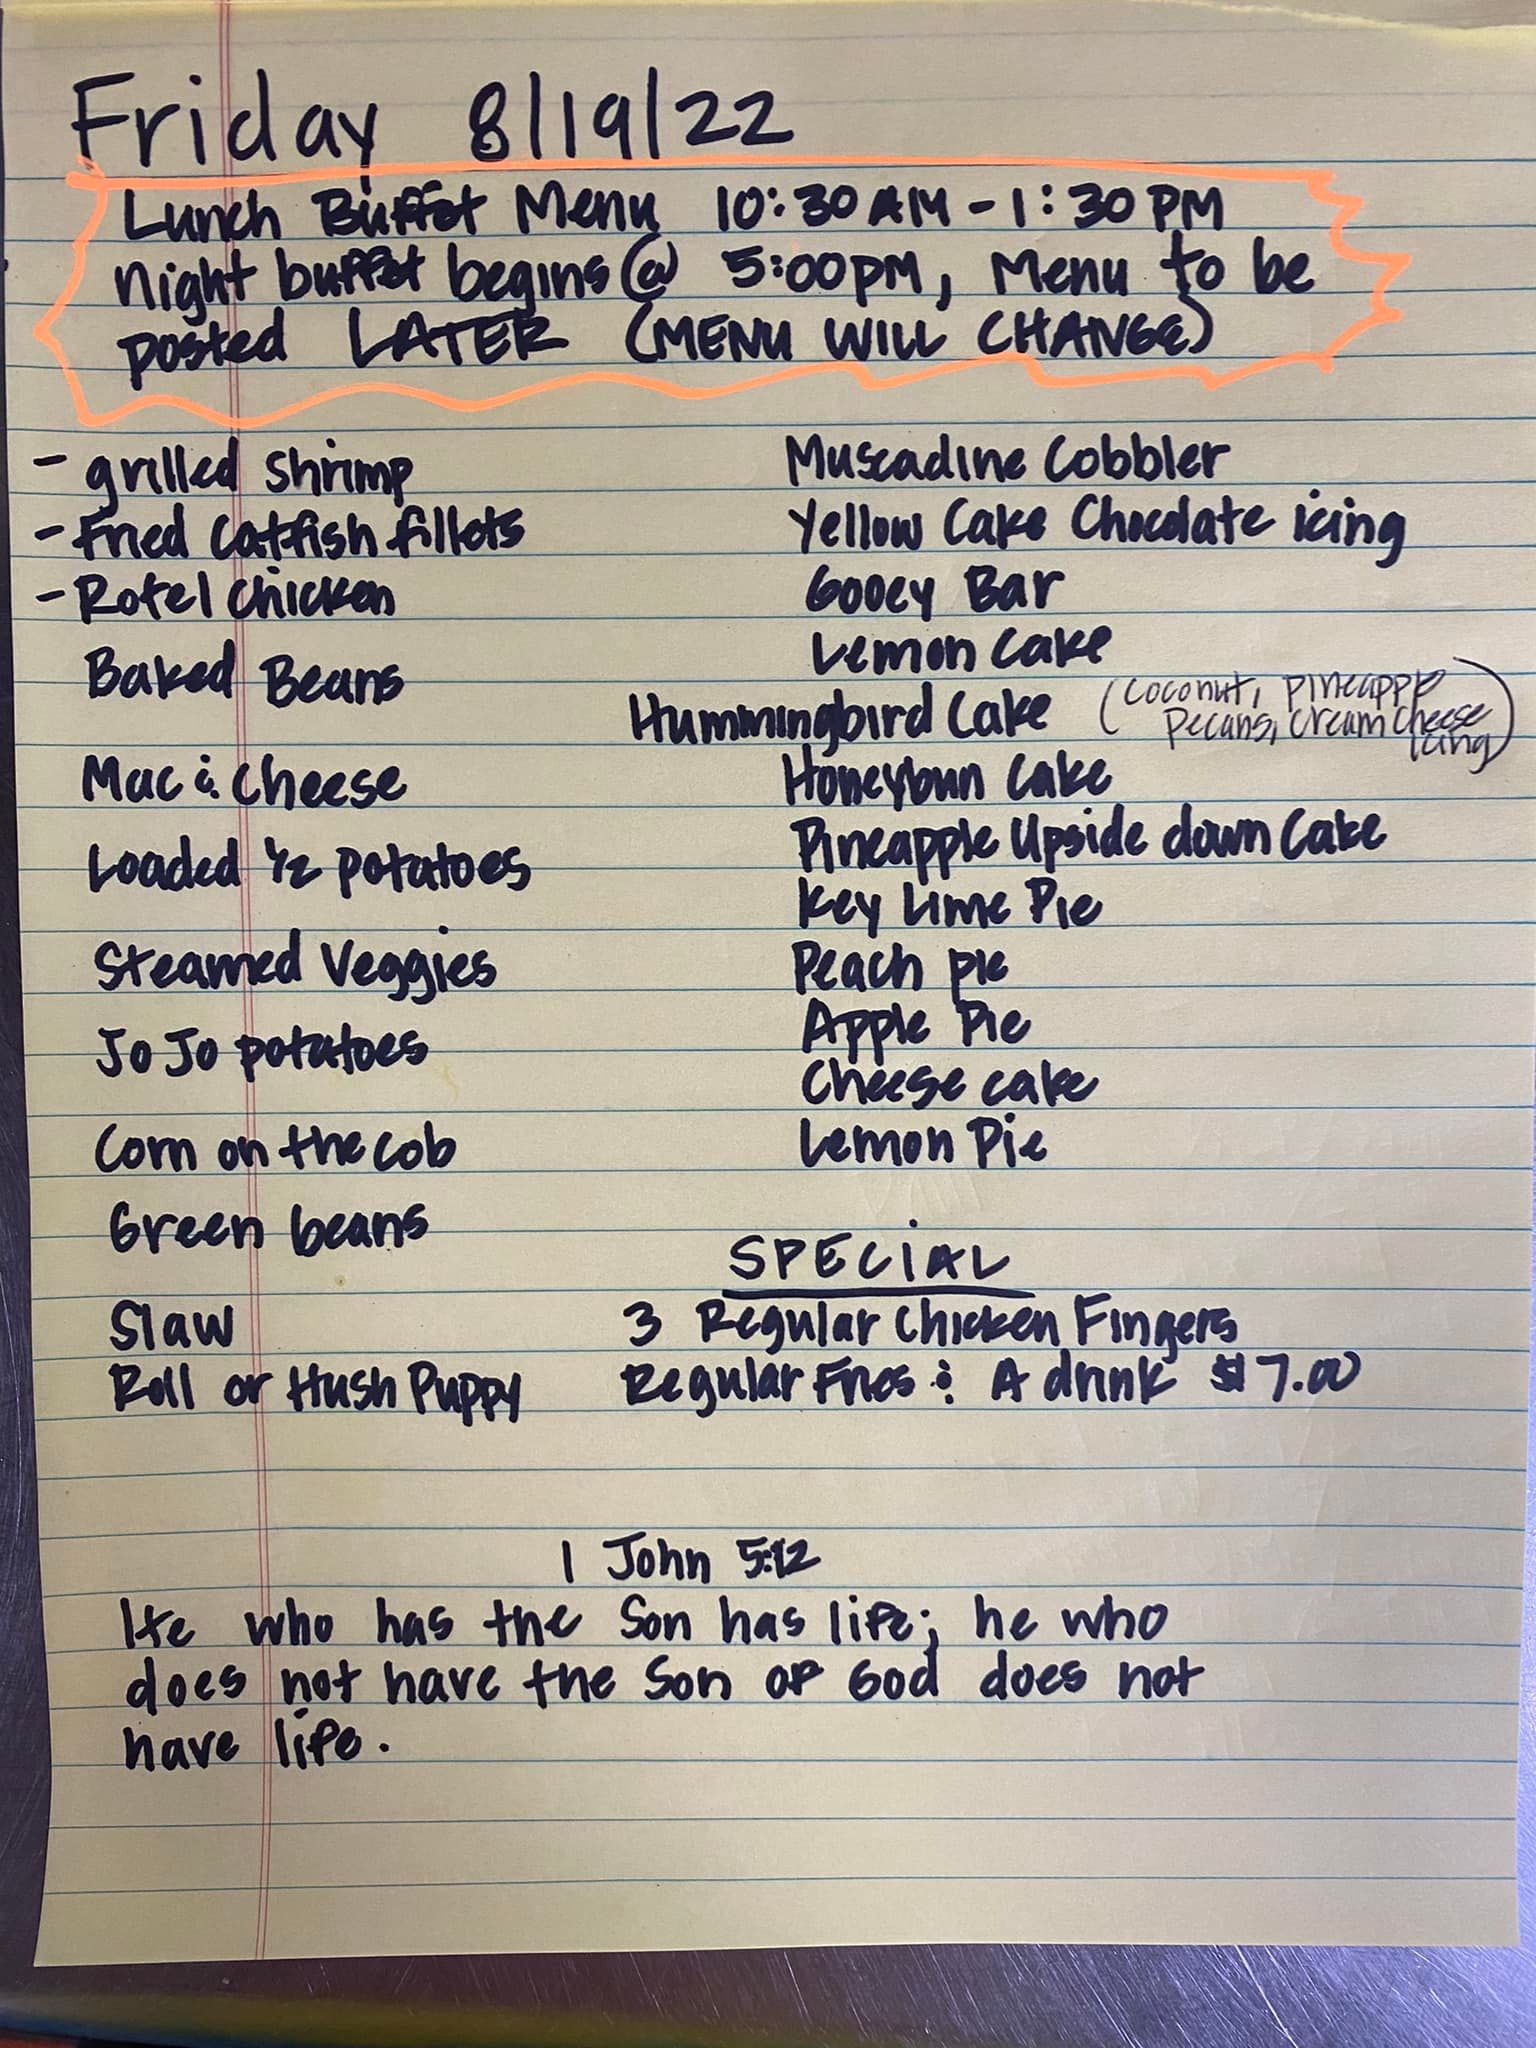 Friday 8/19/22
Lunch Buffet Menu 10:30AM - 1:30PM
night buffet begins @ 5:00PM, Menu to be
posted LATER (MENU WILL CHANGE)
- grilled shrimp
- Fried Catfish fillets
- Rotel Chicken
Baked Beans
Mac & Cheese
Loaded 1/2 potatoes
Steamed Veggies
JoJo potatoes
Corn on the cob
Green beans
Slaw
Roll or Hush Puppy
Muscadine Cobbler
Yellow Cake Chocolate icing
Gooey Bar
Lemon Cake
Hummingbird Cake (Coconut, Pineapple
Pecans, Cream Cheese
icing)
Honeybun Cake
Pineapple Upside down Cake
Key Lime Pie
Peach pie
Apple Pie
Cheese cake
Lemon Pie
SPECIAL
3 Regular Chicken Fingers
Regular Fries & A drink $7.00
1 John 5:12
He who has the Son has life; he who
does not have the Son of God does not
have life.